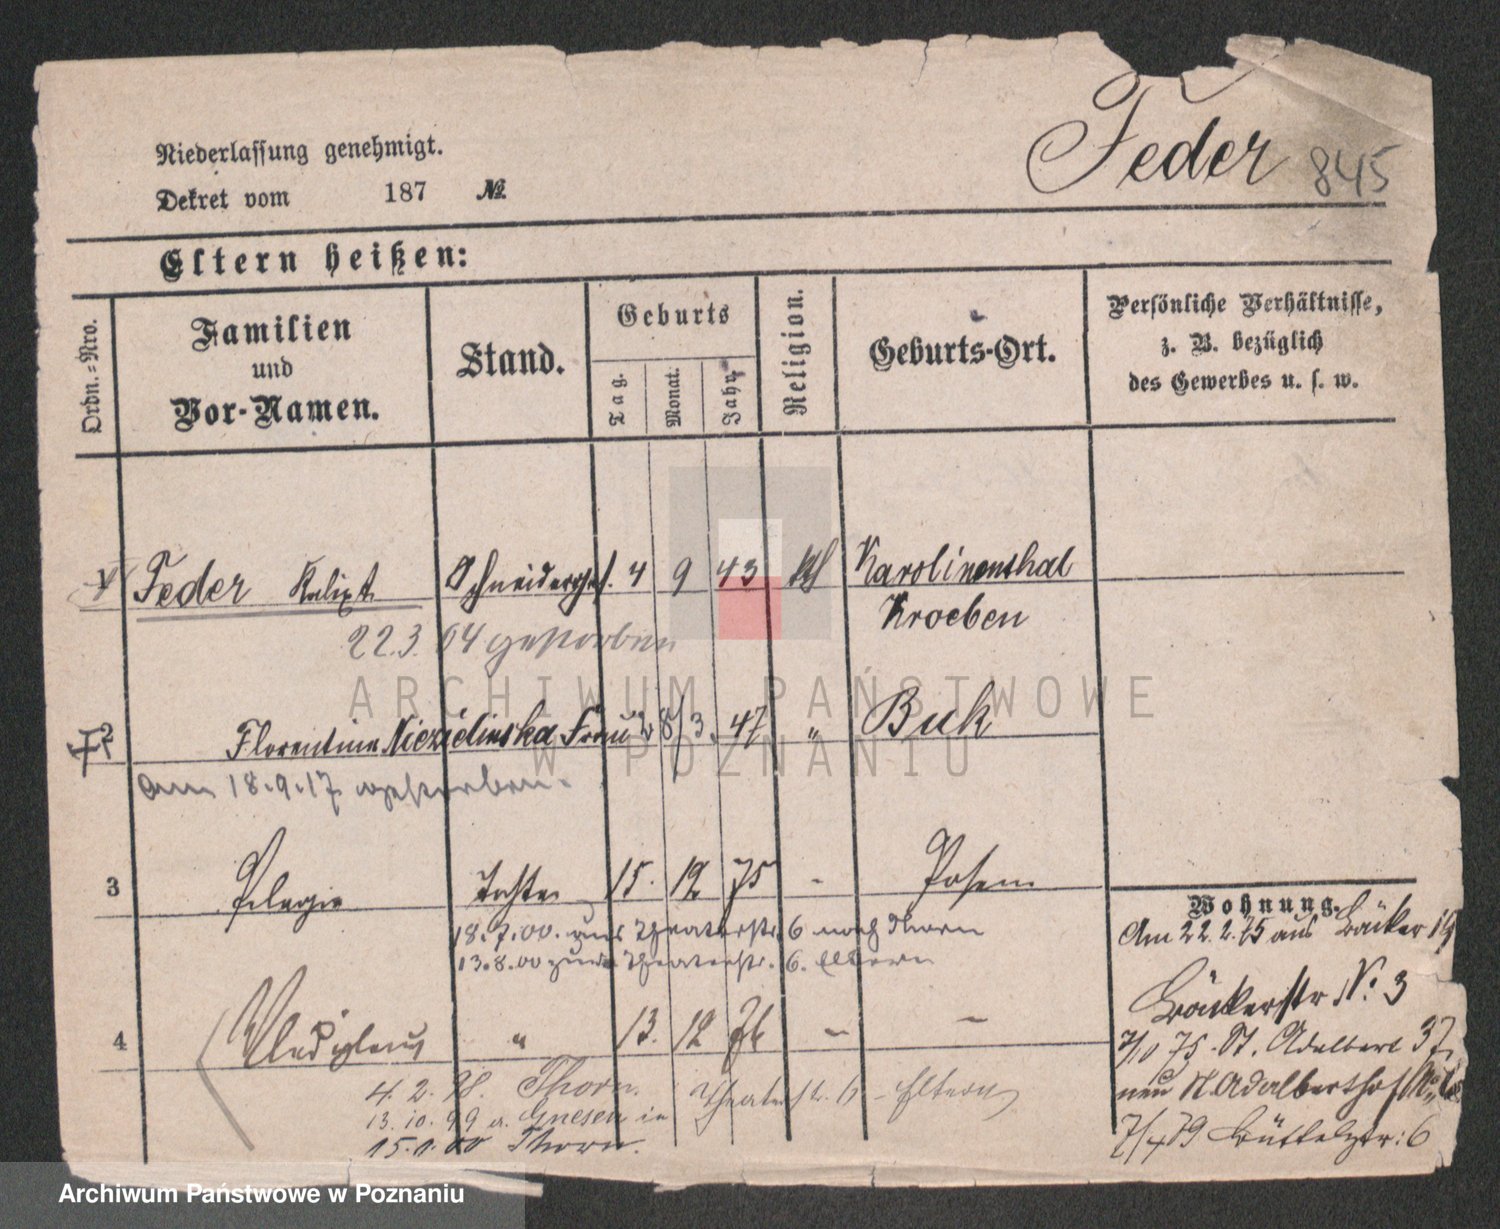 Feder 845
Niederlassung genehmigt.
Dekret vom 187 №
Eltern heißen:
Ordn.-Nro.
Familien
und
Vor-Namen.
Stand.
Geburts
Tag.
Monat.
Jahr.
Religion.
Geburts-Ort.
Persönliche Verhältnisse,
z. B. bezüglich
des Gewerbes u. s. w.
1 Feder Kalixt Schneiderges. 4 9 43 kth Karolinenthal
Kroeben
22.3.04 gestorben
ARCHIWUM PAŃSTWOWE
W POZNANIU
2 Florentine Niezielinska Frau 28/3. 47 " Buk
am 18.9.17 gestorben.
3 Pelagie Tochter 15. 12 75 - Posen
18.7.00. aus Theaterstr. 6 nach Thorn
13.8.00 zur. Theaterstr. 6. Eltern
4 Wladislaus " 13. 12 76 - -
4. 2. 98. Thorn. Theaterstr. 6 - Eltern
13. 10. 99 a. Gnesen in
15.1.00 Thorn.
Wohnung.
Am 22. 2. 75 aus Bäcker 19
Bäckerstr No. 3
7/10 75. St. Adalbert 37
neu
7/4 79 Büttelstr: 6
Archiwum Państwowe w Poznaniu